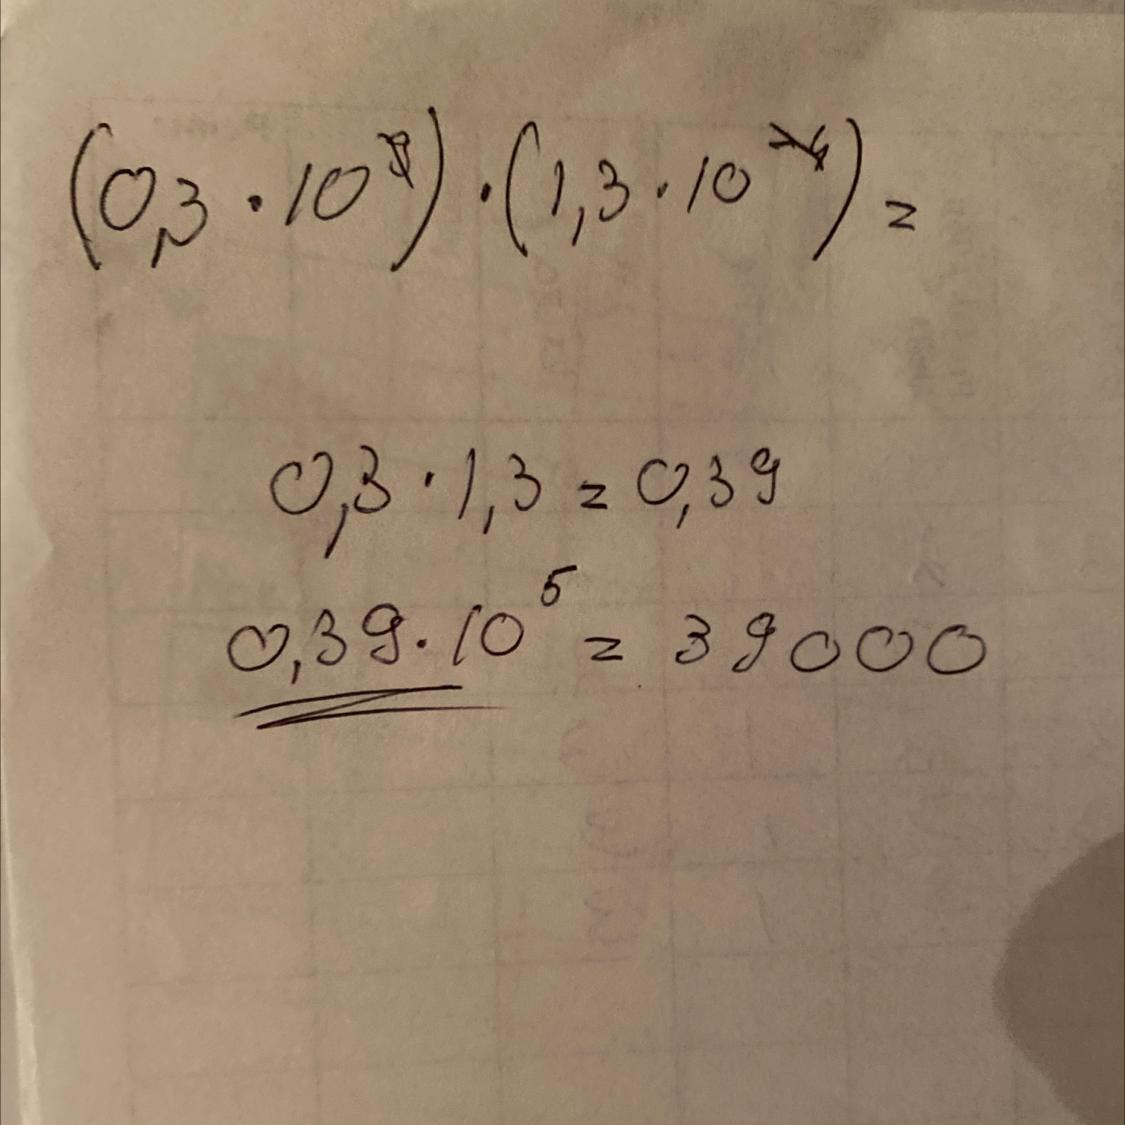 (0,3 · 10 ) · (1,3 · 10 ) =
0,3 · 1,3 = 0,39
0,39 · 10⁵ = 39000